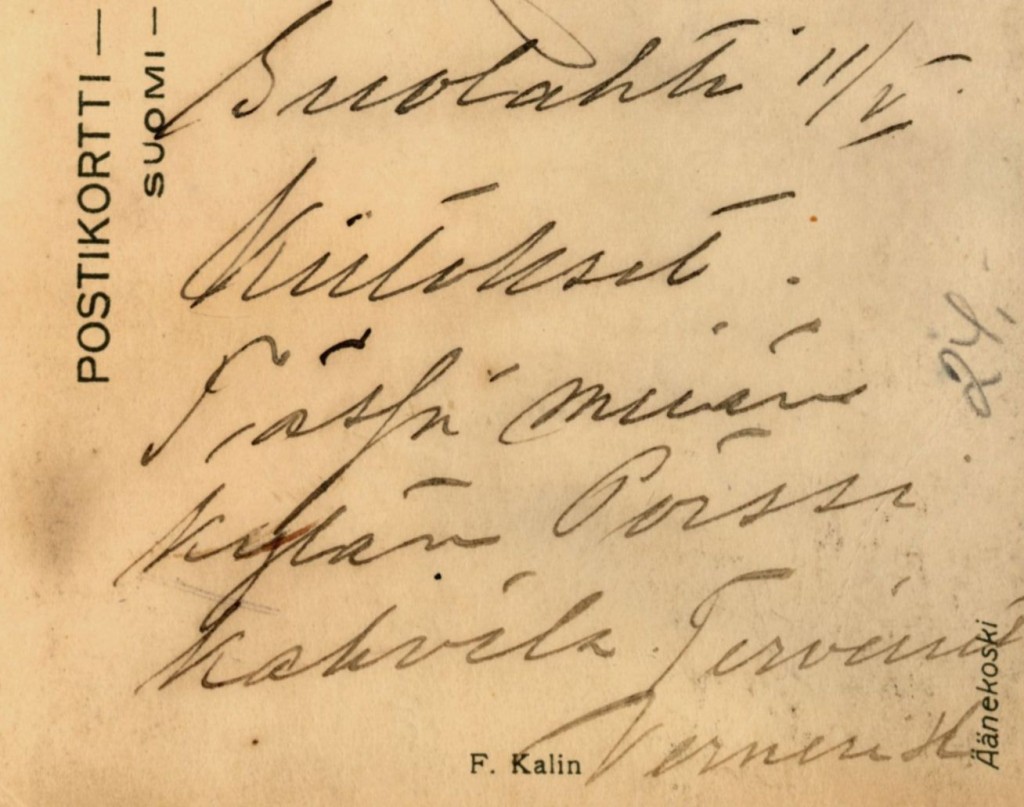 POSTIKORTTI —
SUOMI —
Suolahti 11/V.
Kiitokset.
Tässä meiän
kylän Pörssi
kahvila. Terveisiä
Verneri H
24.
F. Kalin
Äänekoski